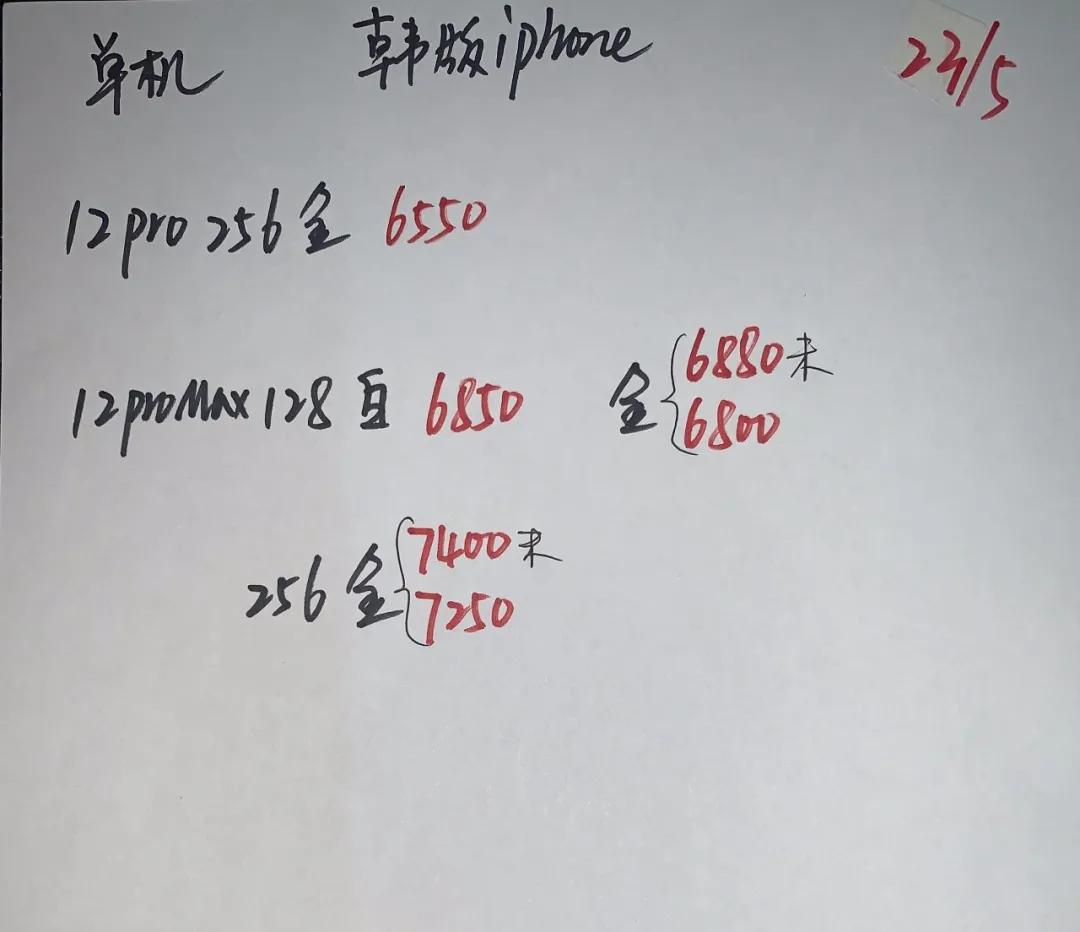 单机 韩版iphone 23/5
12pro 256 金 6550
12proMax 128 白 6850 金 { 6880未
6800
256 金 { 7400未
7250